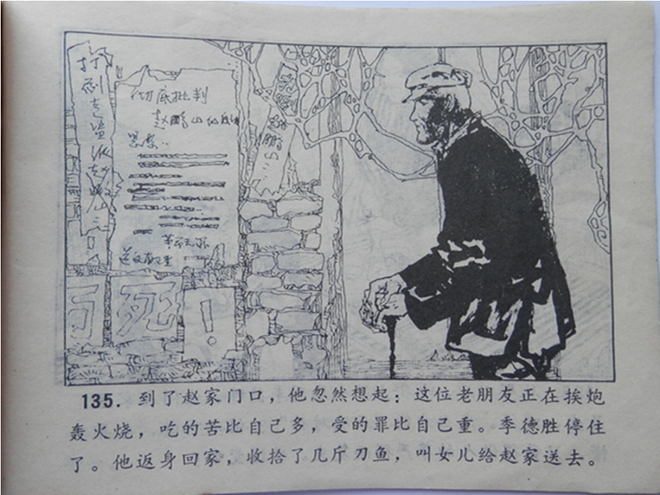 打倒走资派赵鹏
彻底批判
赵鹏
死！
135. 到了赵家门口，他忽然想起：这位老朋友正在挨炮
轰火烧，吃的苦比自己多，受的罪比自己重。季德胜停住
了。他返身回家，收拾了几斤刀鱼，叫女儿给赵家送去。